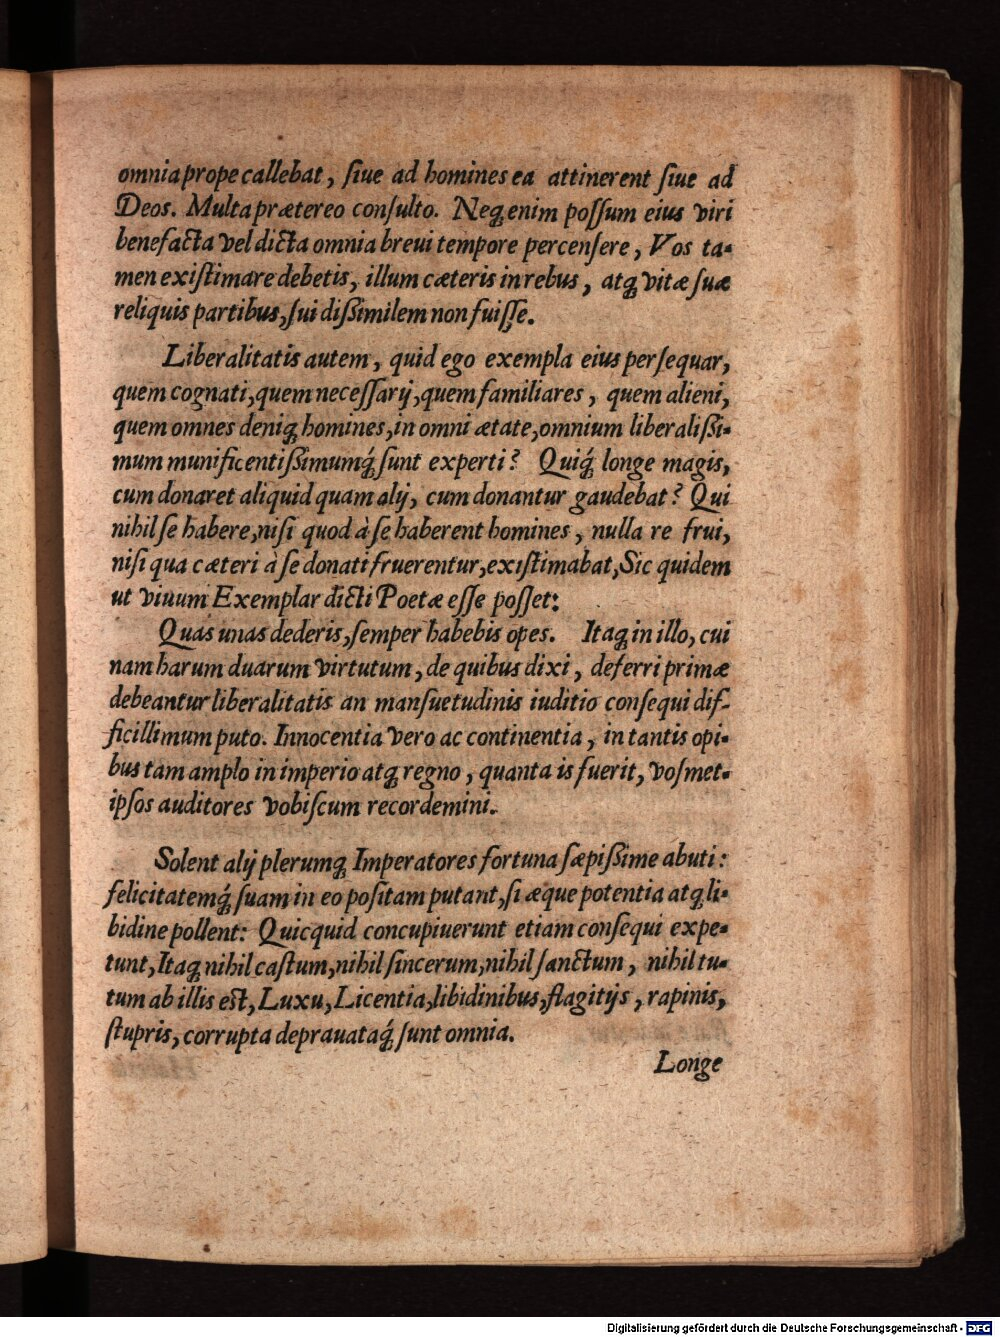 omnia prope callebat, ſiue ad homines ea attinerent ſiue ad
Deos. Multa prætereo conſulto. Neq; enim poſſum eius viri
benefacta vel dicta omnia breui tempore percenſere, Vos ta-
men exiſtimare debetis, illum cæteris in rebus, atq; vitæ ſuæ
reliquis partibus, ſui dißimilem non fuiſſe.
Liberalitatis autem, quid ego exempla eius perſequar,
quem cognati, quem neceſſarij, quem familiares, quem alieni,
quem omnes deniq; homines, in omni ætate, omnium liberalißi-
mum munificentißimumq́; ſunt experti? Quiq́; longe magis,
cum donaret aliquid quam alij, cum donantur gaudebat? Qui
nihil ſe habere, niſi quod à ſe haberent homines, nulla re frui,
niſi qua cæteri à ſe donati fruerentur, exiſtimabat, Sic quidem
ut viuum Exemplar dicti Poetæ eſſe poſſet:
Quas unas dederis, ſemper habebis opes. Itaq; in illo, cui
nam harum duarum virtutum, de quibus dixi, deferri primæ
debeantur liberalitatis an manſuetudinis iuditio conſequi dif-
ficillimum puto. Innocentia vero ac continentia, in tantis opi-
bus tam amplo in imperio atq; regno, quanta is fuerit, voſmet-
ipſos auditores vobiſcum recordemini.
Solent alij plerumq; Imperatores fortuna ſæpißime abuti:
felicitatemq́; ſuam in eo poſitam putant, ſi æque potentia atq; li-
bidine pollent: Quicquid concupiuerunt etiam conſequi expe-
tunt, Itaq; nihil caſtum, nihil ſincerum, nihil ſanctum, nihil tu-
tum ab illis eſt, Luxu, Licentia, libidinibus, flagitijs, rapinis,
ſtupris, corrupta deprauataq́; ſunt omnia.
Longe
Digitalisierung gefördert durch die Deutsche Forschungsgemeinschaft - DFG